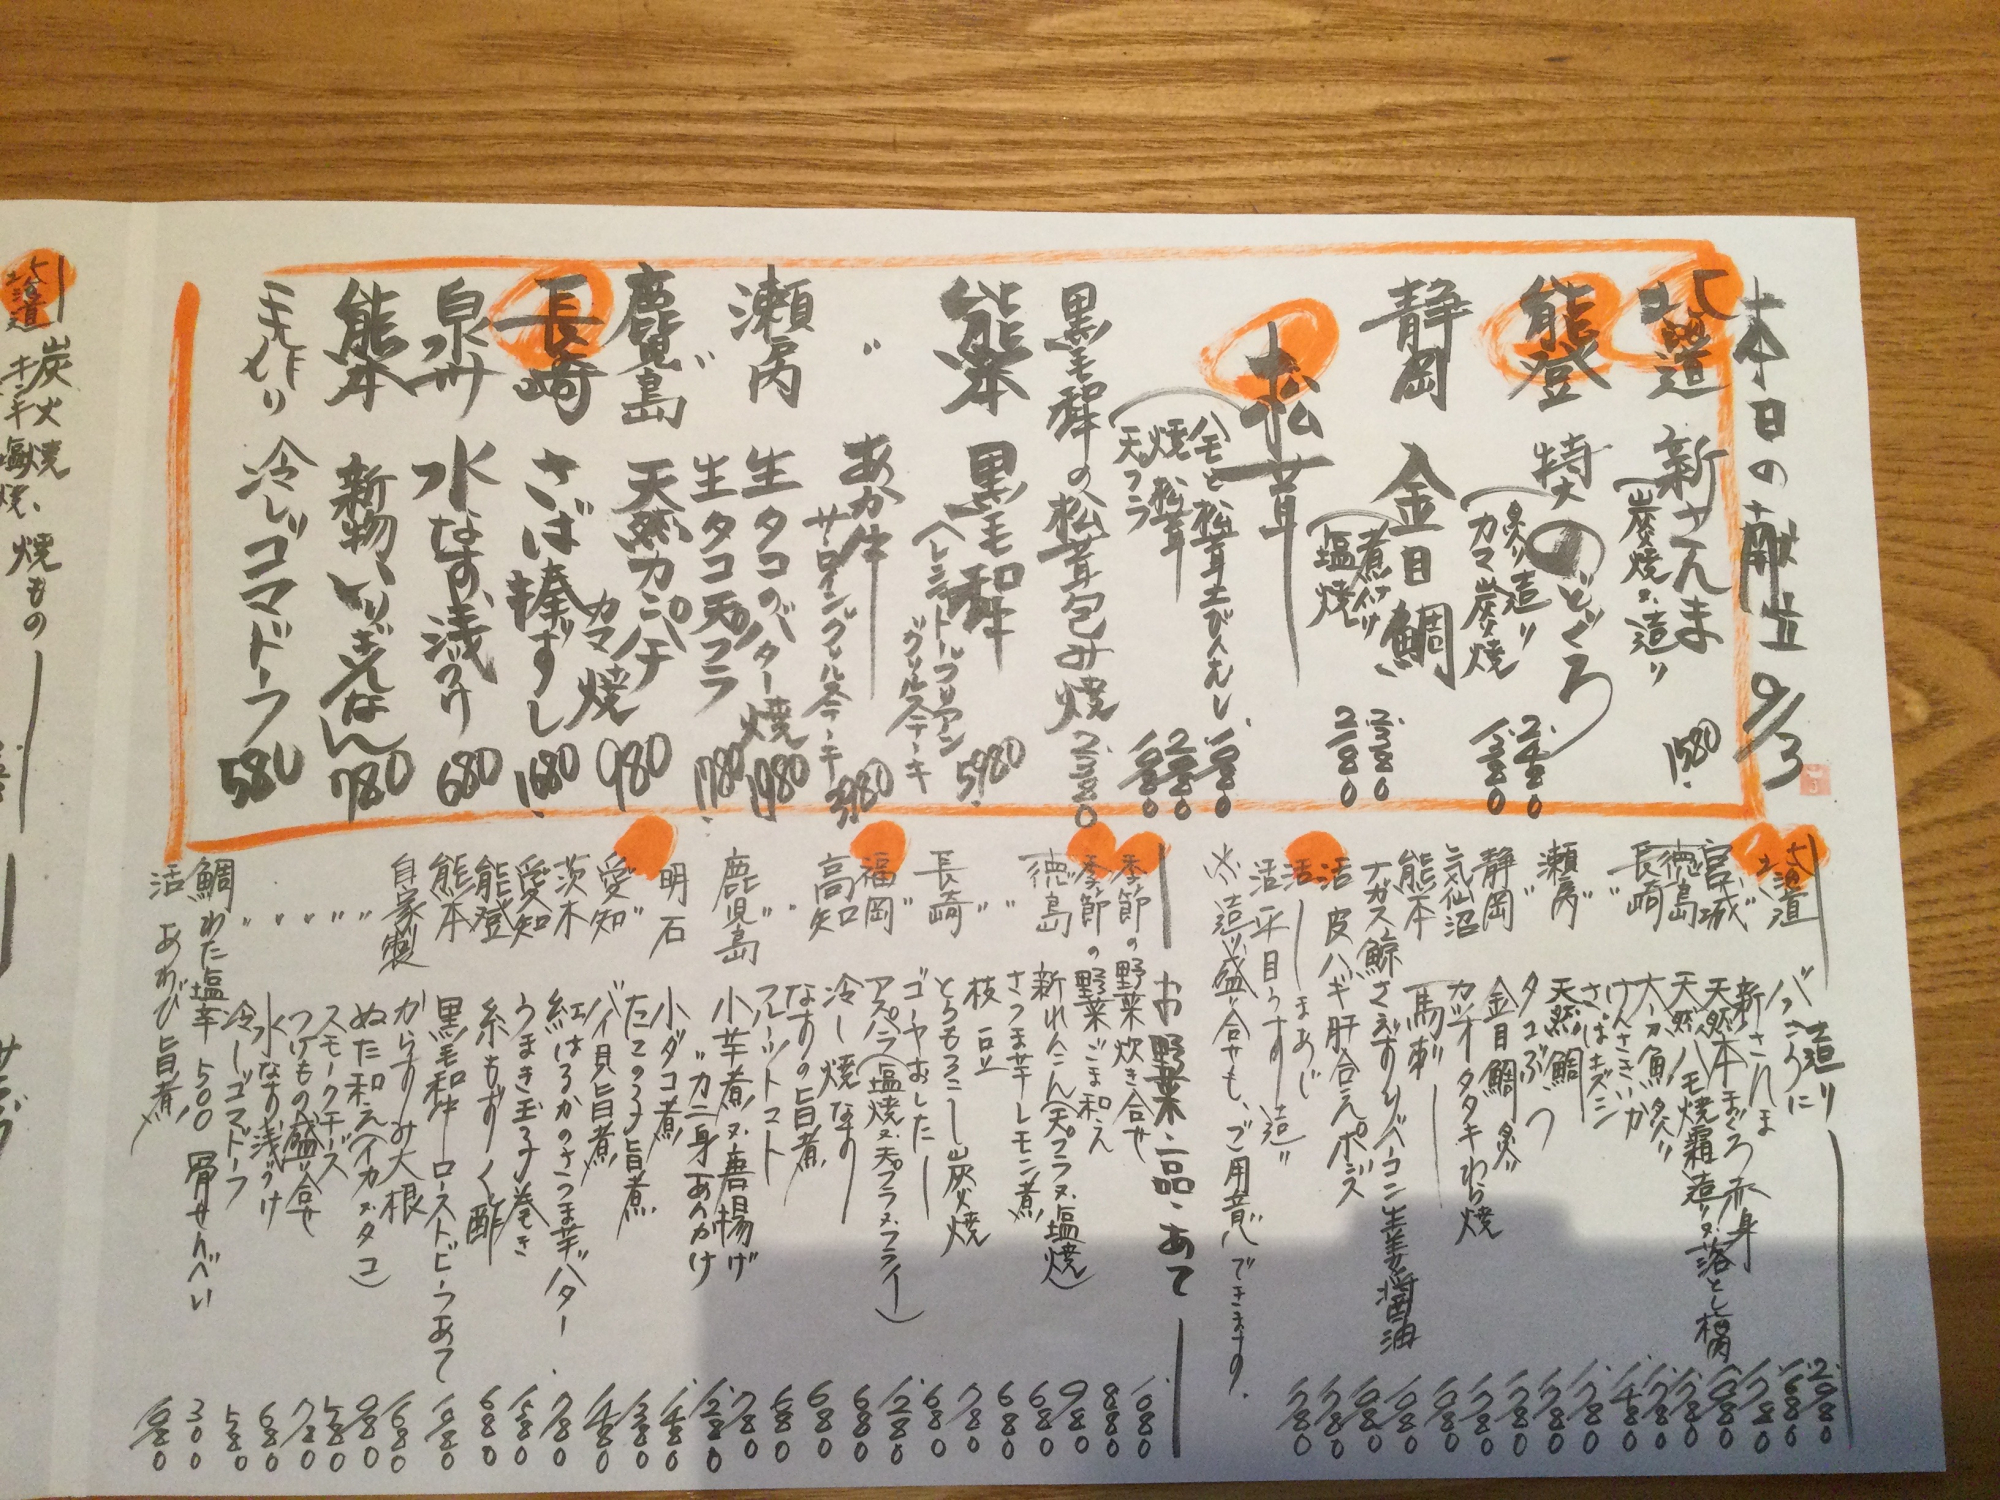 本日の献立 9/3
北海道 新さんま 1580
(炭焼又造り
能登 特大のどぐろ
炙り造り 2480
カマ炭焼 1380
静岡 金目鯛
煮付け 2380
塩焼 2180
松茸
ハモと松茸土びんむし 1080
焼松茸 2080
天プラ 1980
黒毛和牛の松茸包み焼 2380
熊本 黒毛和牛 5980
ヘレシャトーブリアン
グリルステーキ
〃 あか牛 3980
サーロイングリルステーキ
瀬戸内 生タコのバター焼 1980
〃 生タコ天プラ 1780
鹿児島 天然カンパチ
カマ焼 980
長崎 さば棒ずし 1680
泉州 水なす浅づけ 680
熊本 新物いりぎんなん 780
手作り 冷しゴマドーフ 580
造り
北海道 バフンうに 2980
〃 新さんま 1680
宮城 天然本まぐろ赤身
徳島 天然ハモ焼霜造り又落とし梅肉
〃 太刀魚炙り
長崎 けんさきいか
〃 さばキズシ
瀬戸内 天然鯛
〃 タコぶつ
静岡 金目鯛炙り
気仙沼 カツオタタキわら焼
熊本 馬刺し
ナガス鯨さえずり、ベーコン生姜醤油
活 皮ハギ肝合えポン酢
活 しまあじ
活 平目うす造り
※造り盛り合せも、ご用意できます。
お野菜・一品・あて
季節の野菜炊き合せ
季節の野菜ごま和え 880
徳島 新れんこん(天プラ又塩焼) 980
〃 さつま芋レモン煮 680
〃 枝豆 680
長崎 とうもろこし炭火焼 780
〃 ゴーヤおしたし 680
福岡 アスパラ(塩焼又天プラ又フライ) 1280
高知 冷し焼なす 680
〃 なすの旨煮 680
〃 フルーツトマト 680
鹿児島 小芋煮又唐揚げ 780
〃 カニ身あんかけ 1280
明石 小ダコ煮
〃 たこの子旨煮
愛知 バイ貝旨煮
茨木 紅はるかのさつま芋バター 780
愛知 うまき玉子巻き
能登 糸もずく酢 680
熊本 黒毛和牛ローストビーフあて
自家製 からすみ大根 1680
〃 ぬた和え(イカ又タコ) 980
〃 スモークチーズ 580
〃 つけもの盛り合せ 780
〃 水なす浅づけ 680
〃 冷しゴマドーフ 580
鯛わた塩辛 500 骨せんべい 300
活 あわび旨煮
炭火焼、焼もの
北海道 キンキ塩焼